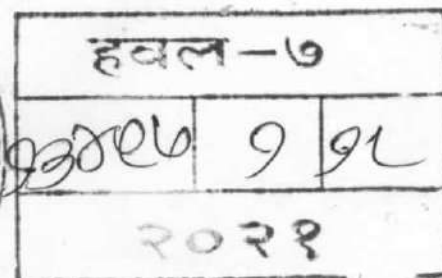 हवल-७
१३४९७ १ १८
२०२१